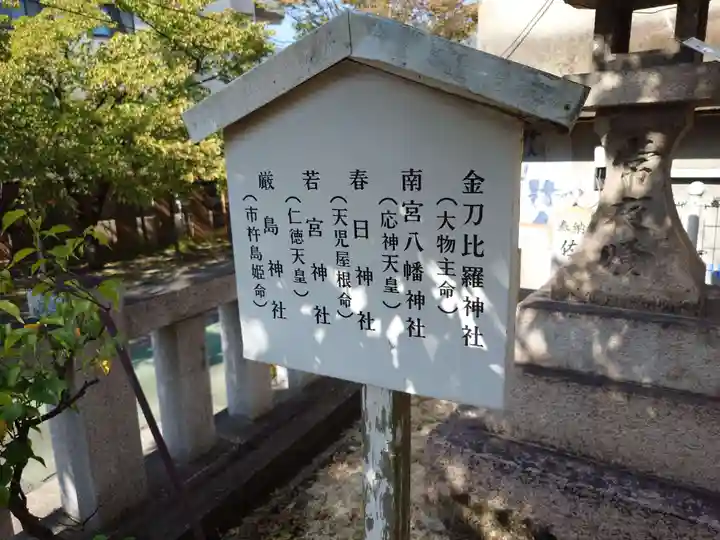 金刀比羅神社
（大物主命）
南宮八幡神社
（応神天皇）
春日神社
（天児屋根命）
若宮神社
（仁徳天皇）
厳島神社
（市杵島姫命）
奉納
佐